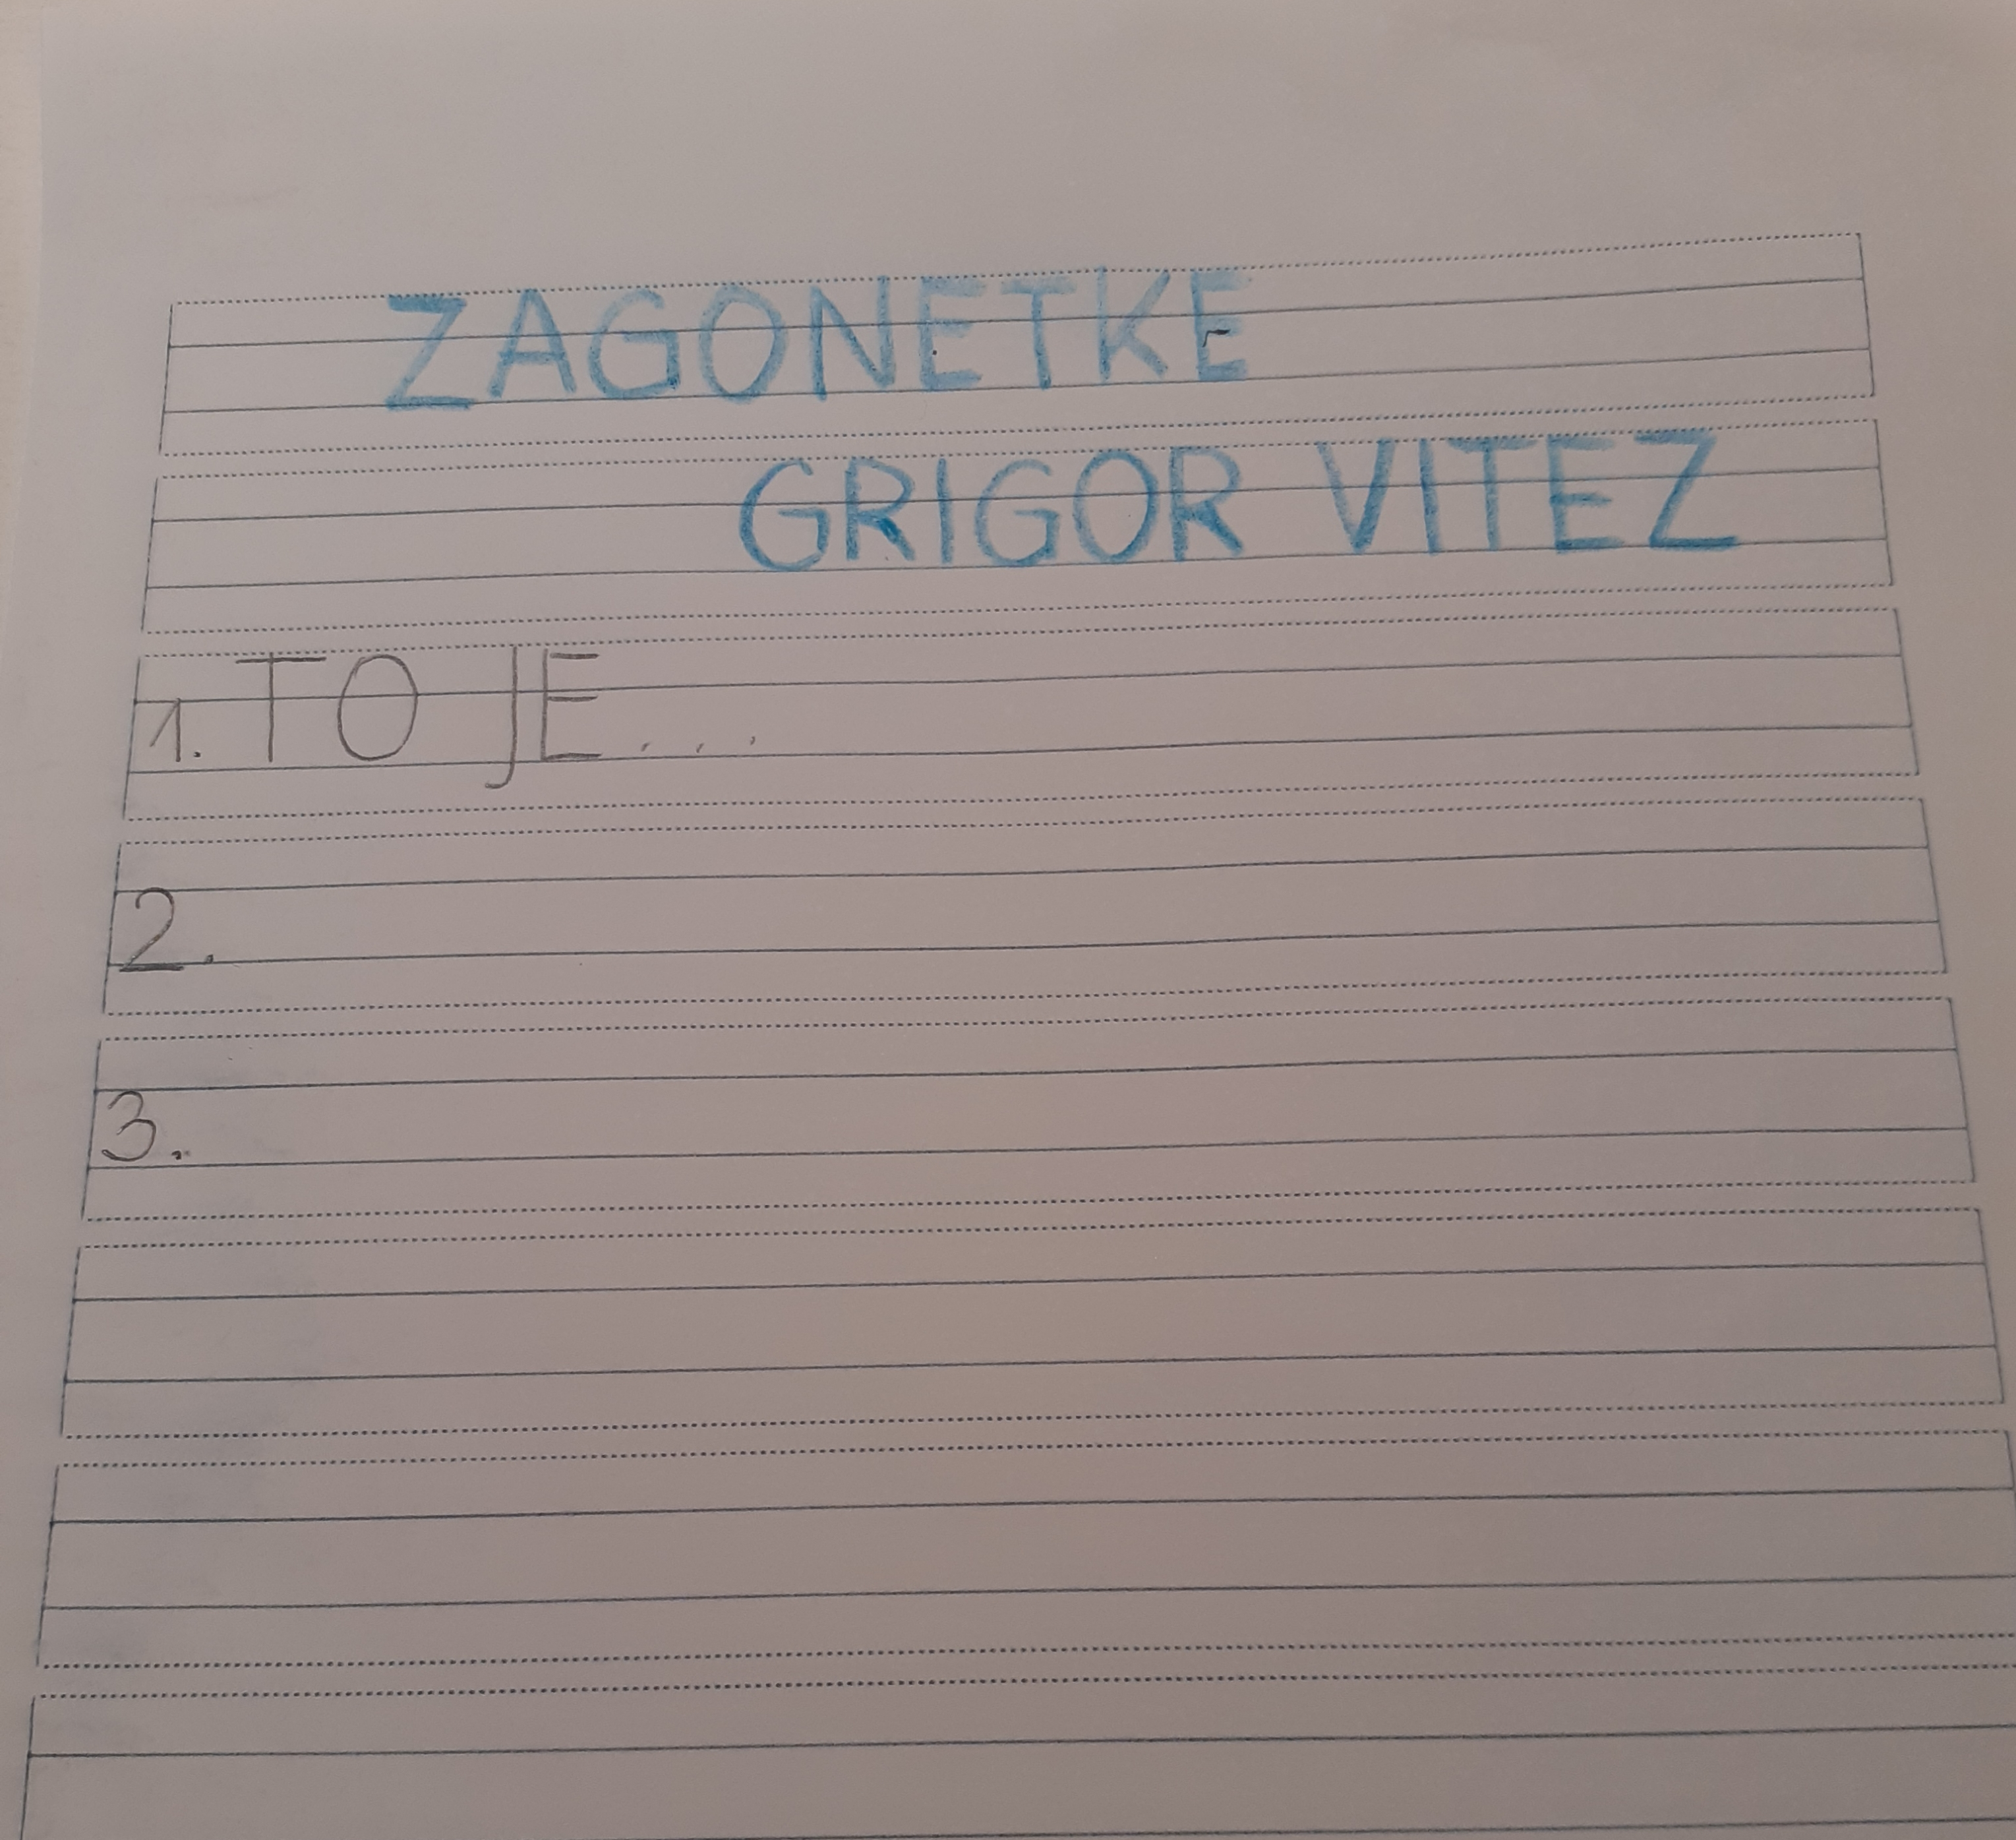 ZAGONETKE
GRIGOR VITEZ
1. TO JE...
2.
3.